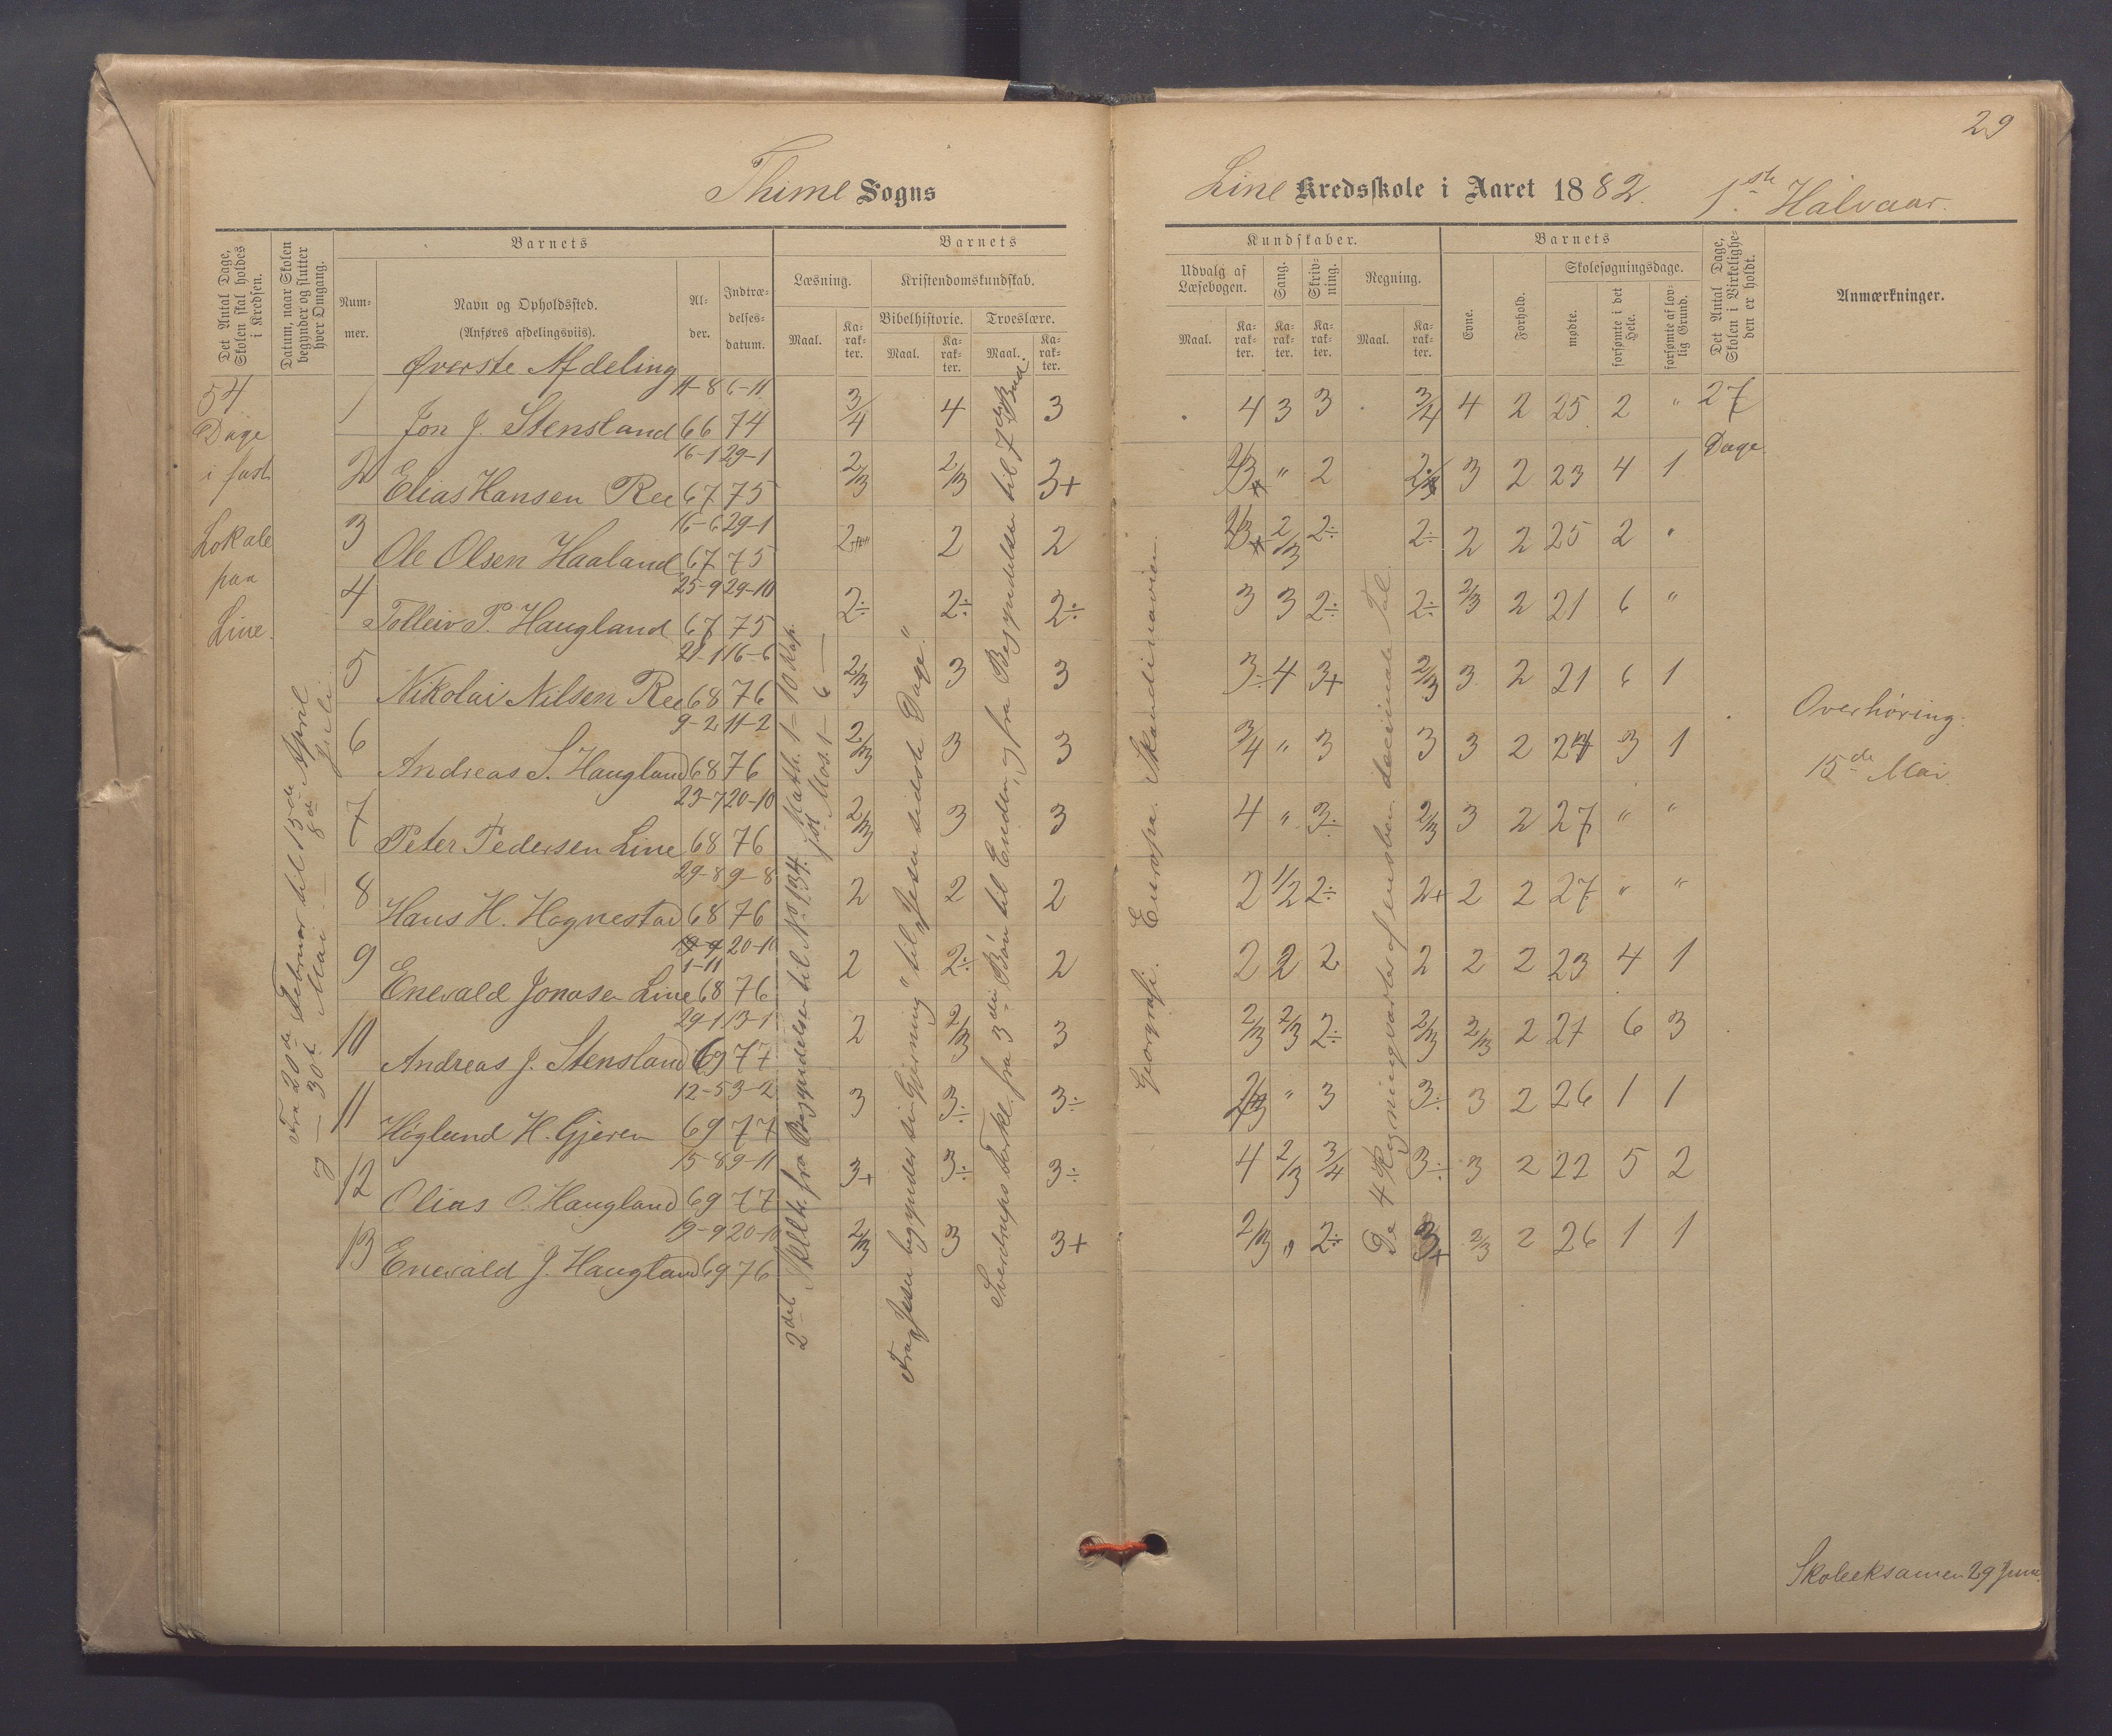 29
Thime Sogns
Line Kredsskole i Aaret 1882. 1ste Halvaar.
Det Antal Dage, Skolen skal holdes i Kredsen.
Datum, naar Skolen begynder og slutter hver Omgang.
Barnets
Nummer.
Navn og Opholdssted.
(Anføres afdelingsviis).
Alder.
Indtrædelsesdatum.
Barnets
Læsning.
Kristendomskundskab.
Bibelhistorie.
Troeslære.
Maal.
Karakter.
Maal.
Karakter.
Maal.
Karakter.
Kundskaber.
Udvalg af Læsebogen.
Sang.
Skrivning.
Regning.
Maal.
Karakter.
Karakter.
Karakter.
Maal.
Karakter.
Barnets
Evne.
Forhold.
Skolesøgningsdage.
mødte.
forsømte i det Hele.
forsømte af lovlig Grund.
Det Antal Dage, Skolen i Virkeligheden er holdt.
Anmærkninger.
Øverste Afdeling
54
Dage
i fast
Lokale
paa
Line.
Fra 20de Februar til 15de April
og — 30te Mai — 8de Juli
2det Skilt. fra Begyndelsen til No 134. Math. 1-10 Kap.
1ste Mos. 1-6 —
Fra "Jesu begynder sin Gjerning" til "Jesu sidste Dage".
Sverdrups Forkl. fra 3die Bøn til Enden, og fra Begyndelsen til 7de Bud.
Geografi. Europa. Skandinavien.
De 4 Regningsarter af ensben. decimale Tal.
1 Jon J. Stensland 11-8 66 6-11 74 3/4 4 3 4 3 3 3/4 4 2 25 2 " 27 Dage
2 Elias Hansen Ree 16-1 67 29-1 75 2/3 2/3 3+ 2/3 " 2 2/3 3 2 23 4 1
3 Ole Olsen Haaland 16-6 67 29-1 75 2 2 2 2/3 2/3 2÷ 2÷ 2 2 25 2 "
4 Tolleiv P. Haugland 25-9 67 29-10 75 2÷ 2÷ 2÷ 3 3 2÷ 2÷ 2/3 2 21 6 "
5 Nikolai Nilsen Ree 21-1 68 16-6 76 2/3 3 3 3÷ 4 3+ 2/3 3 2 21 6 1
6 Andreas S. Haugland 9-2 68 11-2 76 2/3 3 3 3/4 " 3 3 3 2 24 3 1
7 Peter Pedersen Line 23-7 68 20-10 76 2/3 3 3 4 " 3÷ 2/3 3 2 27 " "
8 Hans H. Hognestad 29-8 68 9-8 76 2 2 2 2 1/2 2÷ 2+ 2 2 27 " "
9 Enevald Jonasen Line 19-9 1-11 68 20-10 76 2 2÷ 2 2 2 2 2 2 2 23 4 1
10 Andreas J. Stensland 29-1 69 13-1 77 2 2/3 3 2/3 2/3 2÷ 2/3 2/3 2 21 6 3
11 Høglund H. Gjeren 12-5 69 3-2 77 3 3÷ 3÷ 2/3 " 3 3÷ 3 2 26 1 1
12 Olias O. Haugland 15-8 69 9-11 77 3+ 3÷ 3÷ 4 2/3 3/4 3÷ 3 2 22 5 2
13 Enevald J. Haugland 19-9 69 20-10 76 2/3 3 3+ 2/3 " 2÷ 3+ 2/3 2 26 1 1
Overhøring.
15de Mai.
Skoleeksamen 29 Juni.